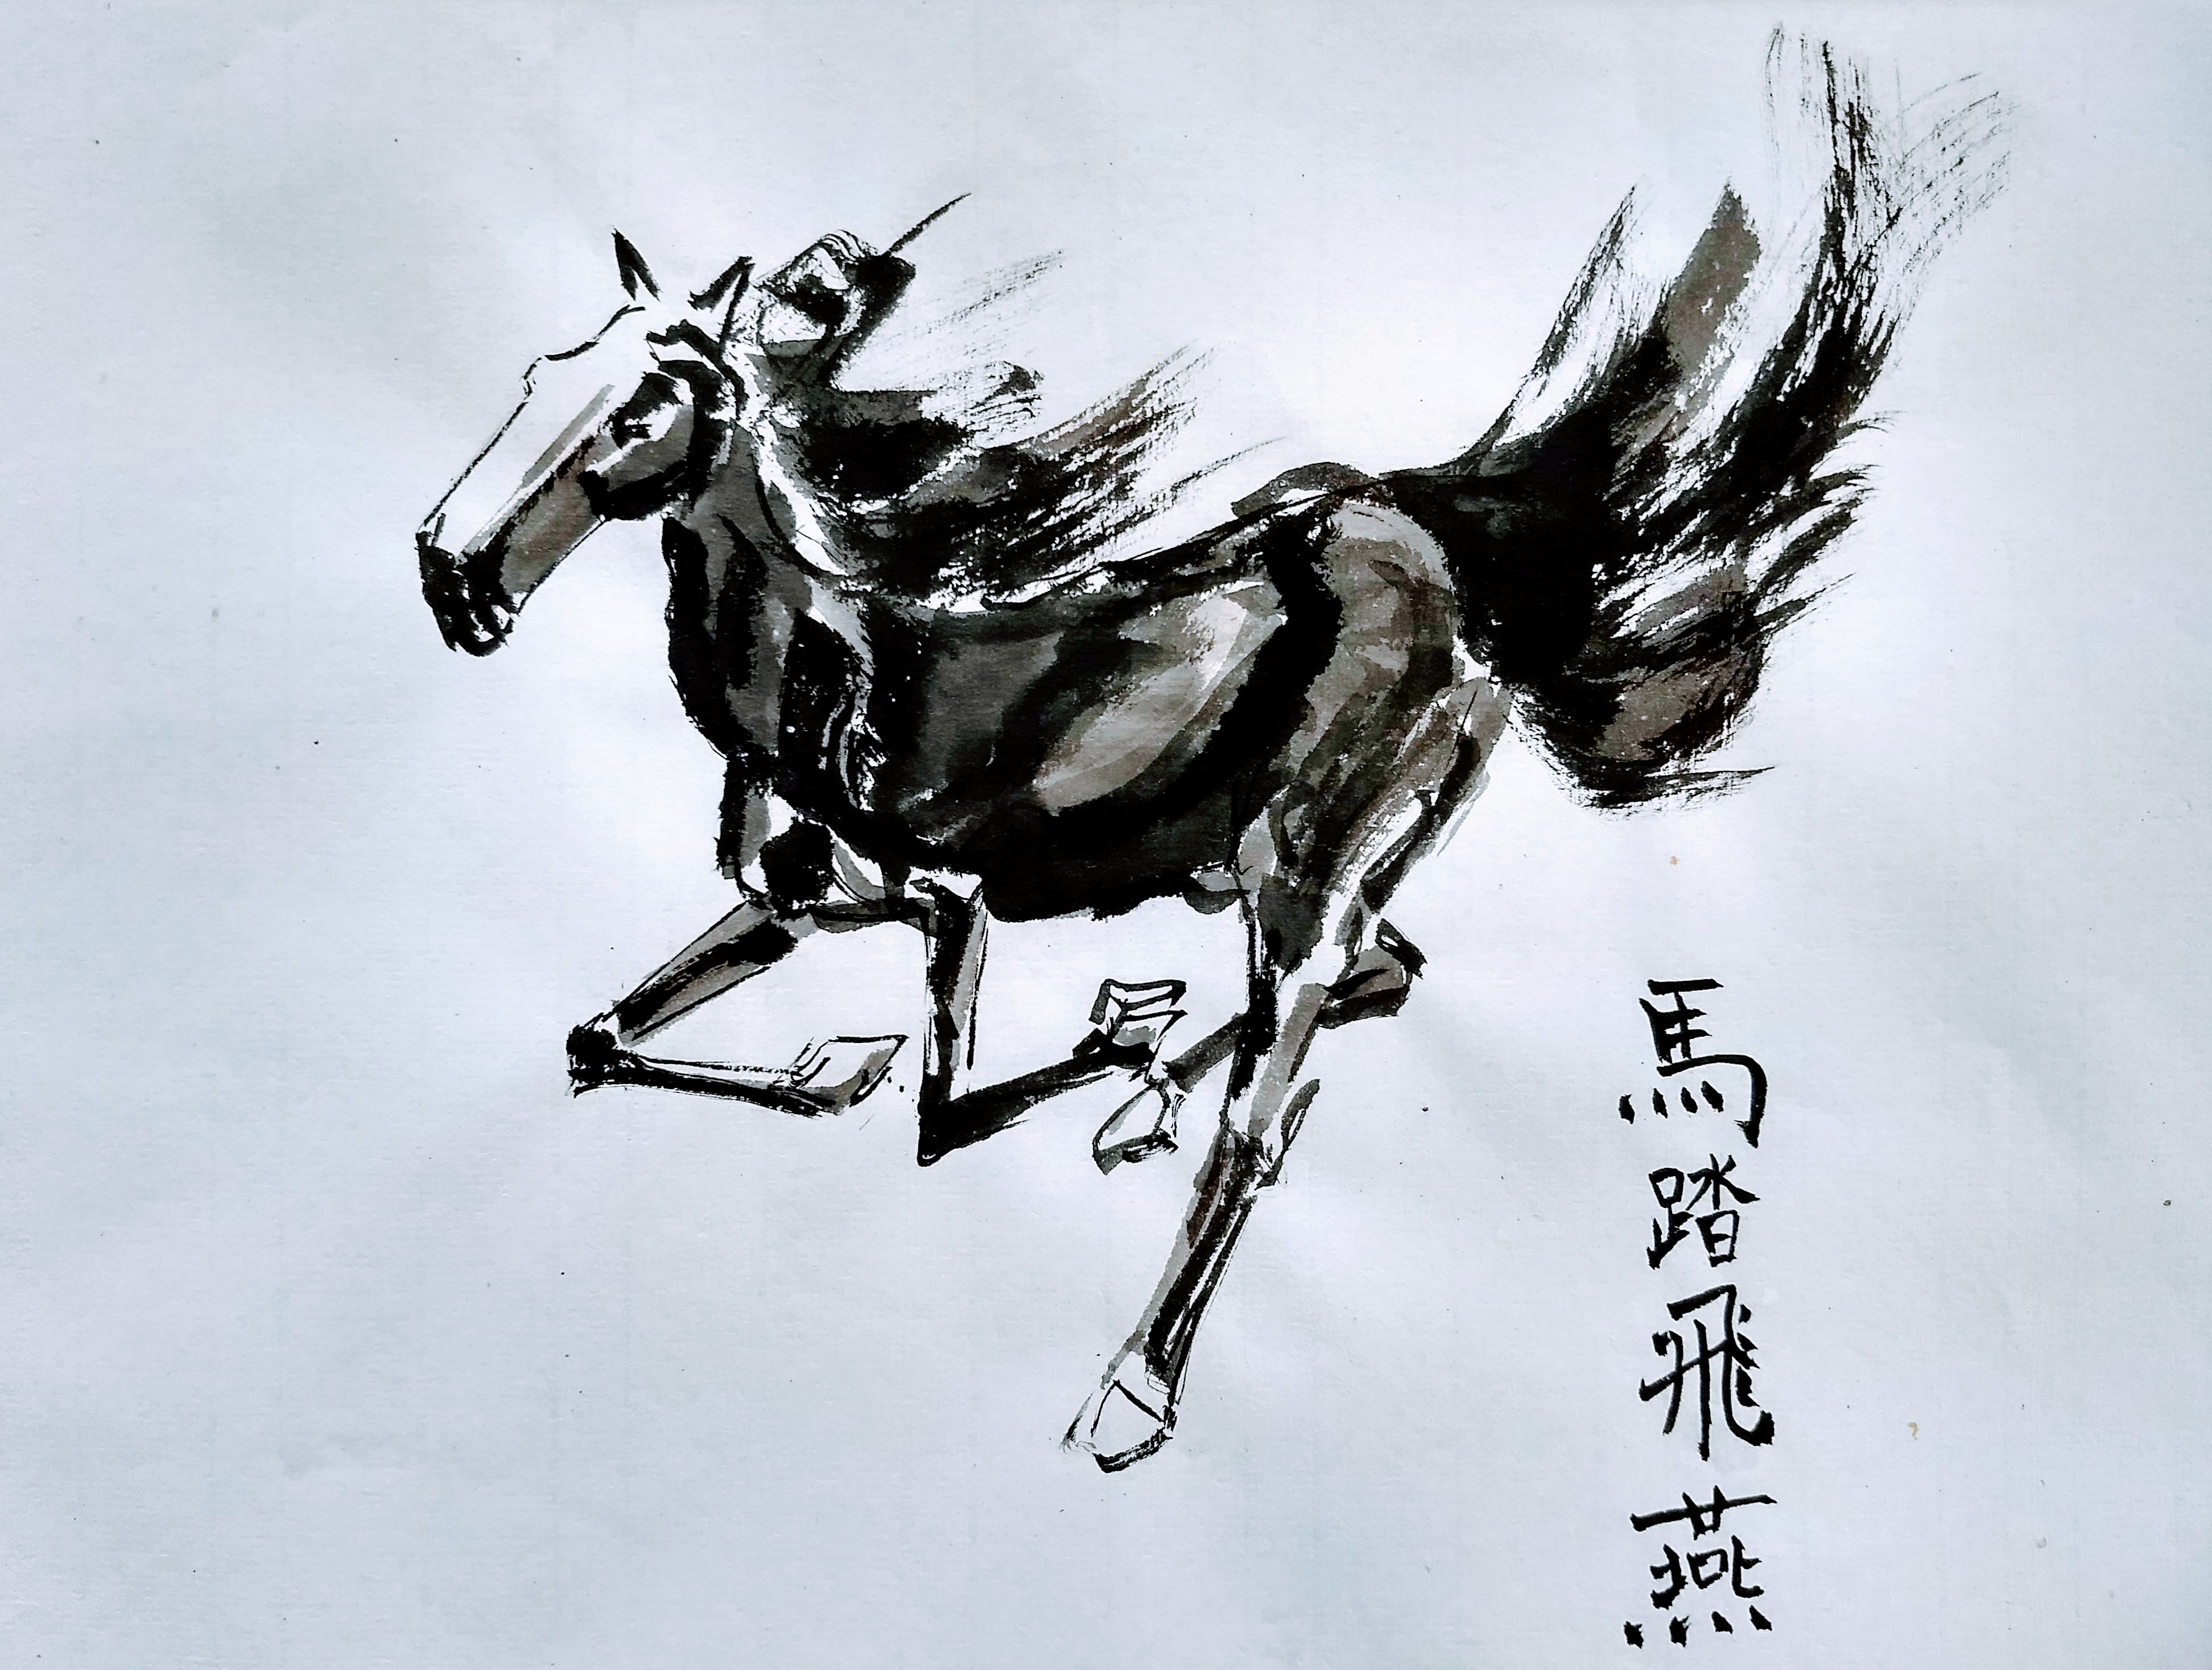 馬踏飛燕